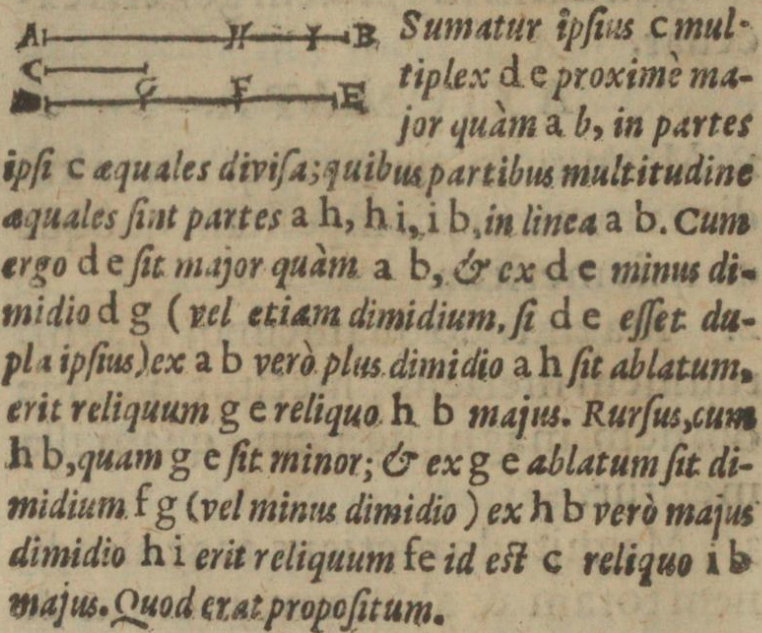 A H I B
C G F
E
Sumatur ipſius c mul-
tiplex d e proximè ma-
jor quàm a b, in partes
ipſi c æquales diviſa; quibus partibus multitudine
æquales ſint partes a h, h i, i b, in linea a b. Cum
ergo d e ſit major quàm a b, & ex d e minus di-
midio d g (vel etiam dimidium, ſi d e eſſet du-
pla ipſius) ex a b verò plus dimidio a h ſit ablatum,
erit reliquum g e reliquo h b majus. Rurſus, cum
h b, quam g e ſit minor; & ex g e ablatum ſit di-
midium f g (vel minus dimidio) ex h b verò majus
dimidio h i erit reliquum fe id eſt c reliquo i b
majus. Quod erat propoſitum.